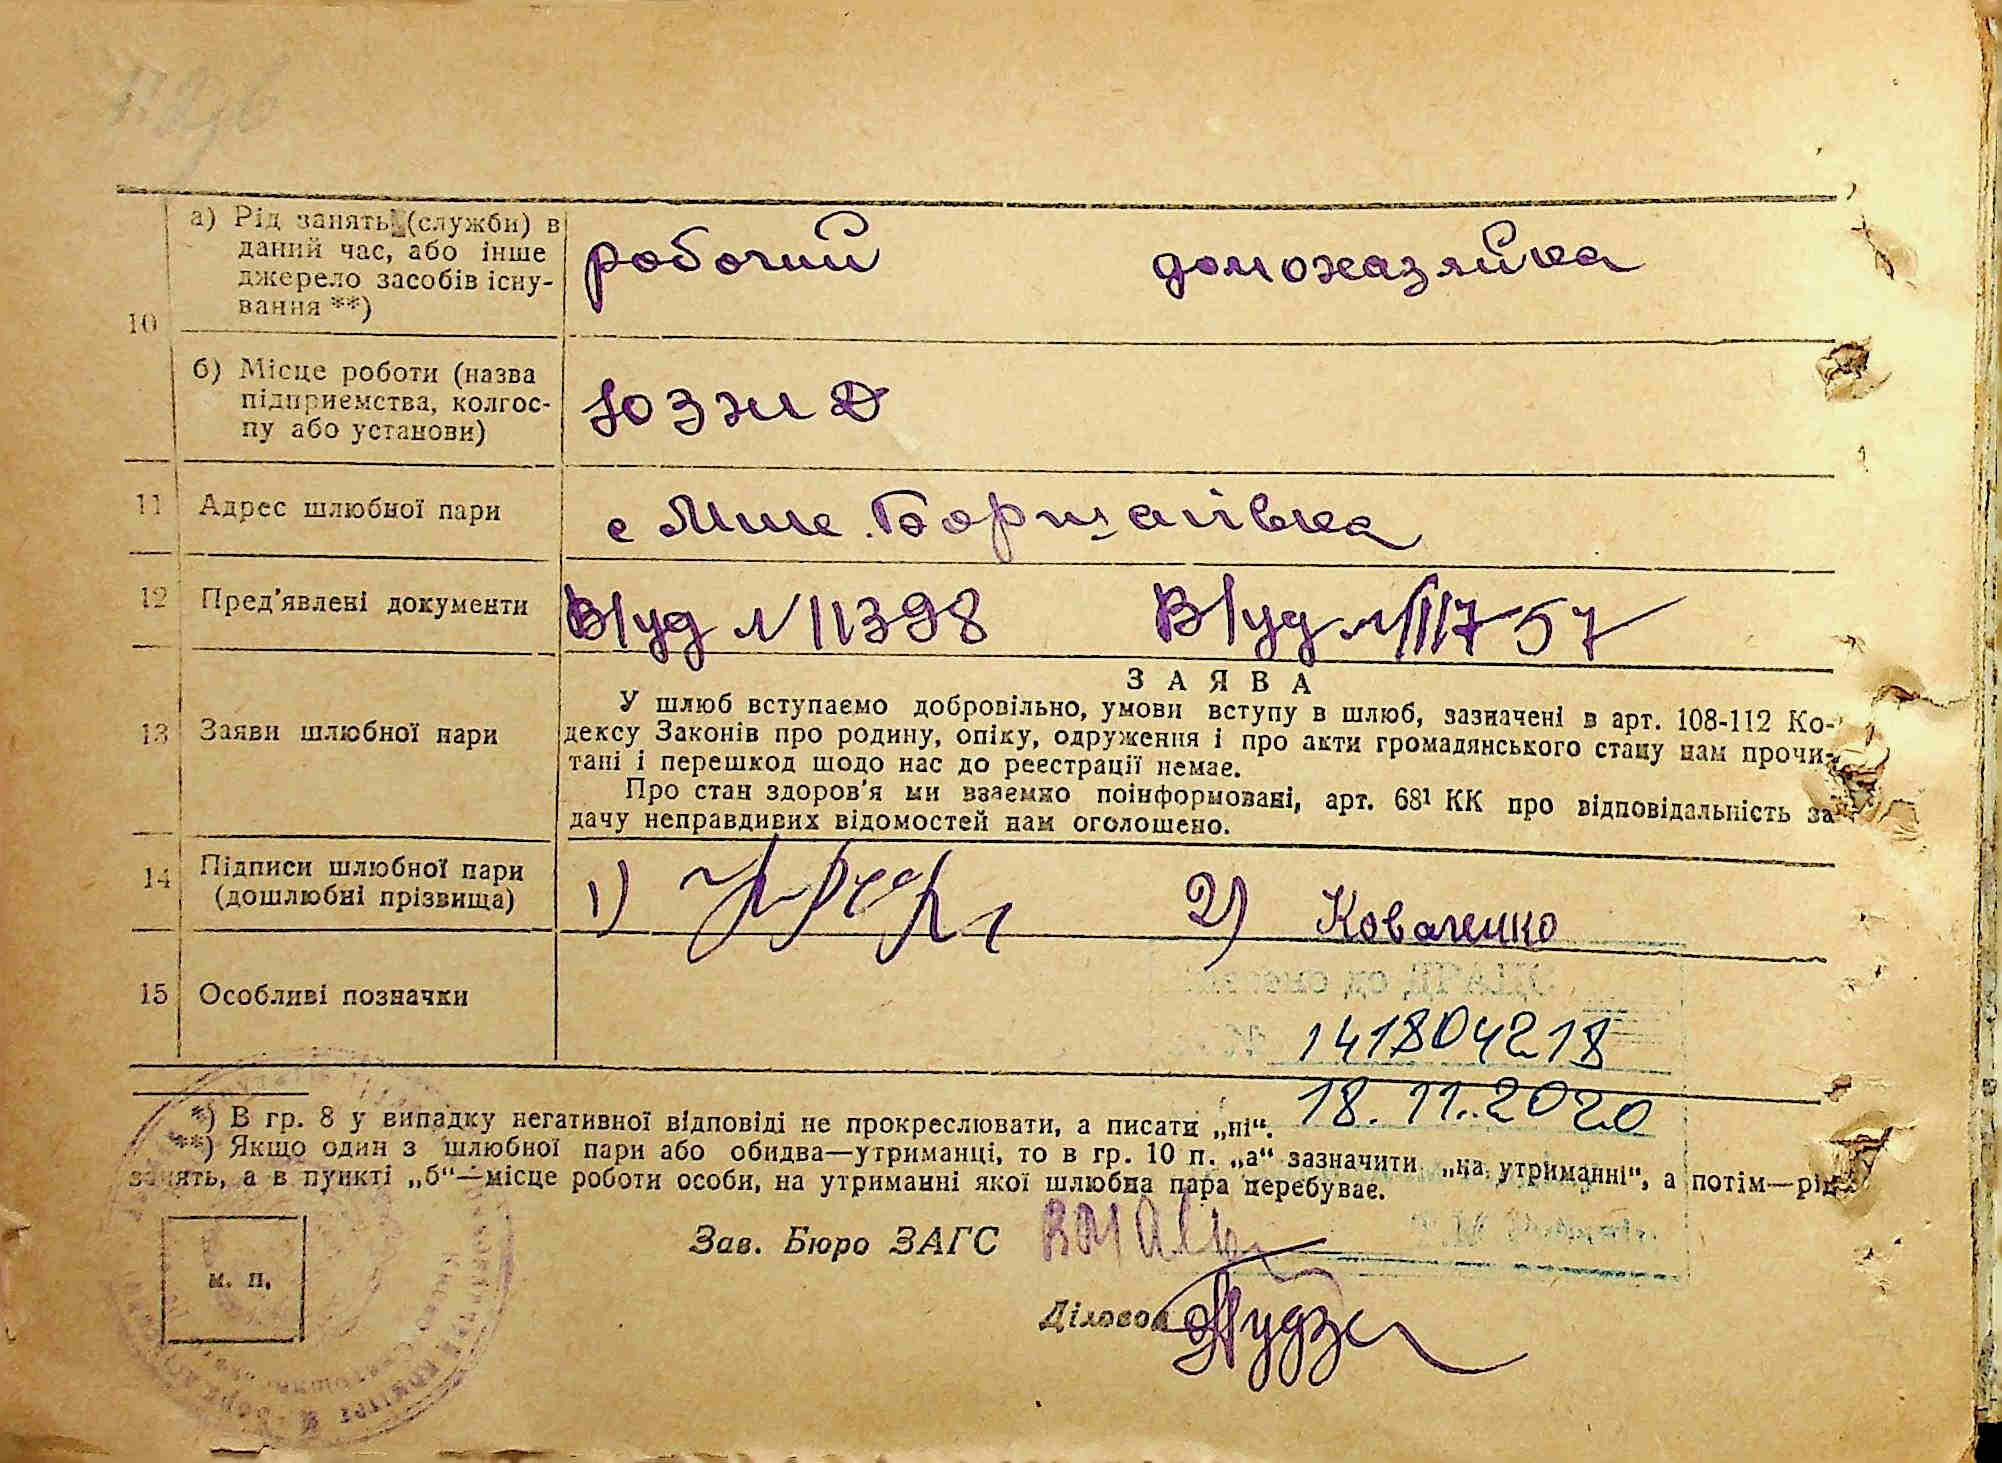 10
а) Рід занять (служби) в
даний час, або інше
джерело засобів існу-
вання **)
робочий домохазяйка
б) Місце роботи (назва
підприємства, колгос-
пу або установи)
11 Адрес шлюбної пари
с Мик. Борщагівка
12 Пред'явлені документи
В/уд № 11398 В/уд № 11757
13 Заяви шлюбної пари
ЗАЯВА
У шлюб вступаємо добровільно, умови вступу в шлюб, зазначені в арт. 108-112 Ко-
дексу Законів про родину, опіку, одруження і про акти громадянського стану нам прочи-
тані і перешкод щодо нас до реєстрації немає.
Про стан здоров'я ми взаємно поінформовані, арт. 68¹ КК про відповідальність за
дачу неправдивих відомостей нам оголошено.
14 Підписи шлюбної пари
(дошлюбні прізвища)
1) 2) Коваленко
15 Особливі позначки
141804218
18.11.2020
*) В гр. 8 у випадку негативної відповіді не прокреслювати, а писати „ні“.
**) Якщо один з шлюбної пари або обидва—утриманці, то в гр. 10 п. „а“ зазначити „на утриманні“, а потім—рід
занять, а в пункті „б“—місце роботи особи, на утриманні якої шлюбна пара перебуває.
Зав. Бюро ЗАГС
м. п.
Діловод